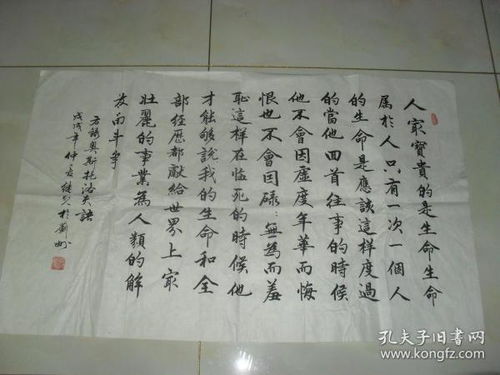 人最寳貴的是生命生命
属於人只有一次一個人
的生命是應該這樣度過
的當他回首往事的時候
他不會因虚度年華而悔
恨也不會因碌:無為而羞
恥這樣在临死的時候他
才能够說我的生命和全
部经歷都献給世界上最
壯麗的事業為人類的解
放而斗争
奥斯托洛夫語
戊戌年仲
孔夫子旧书网
www.kongfz.com